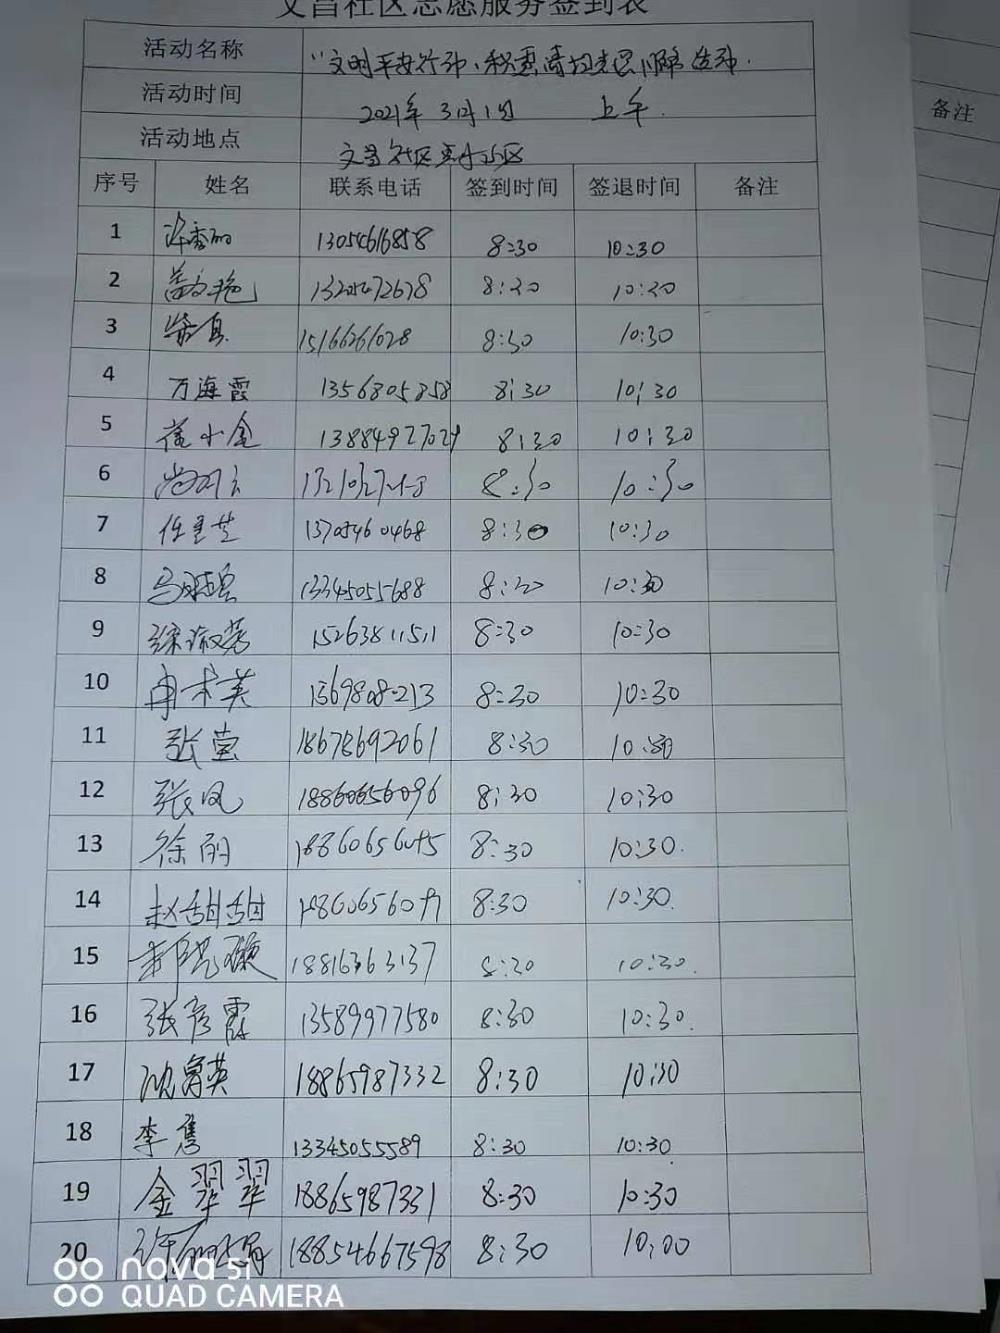 文昌社区志愿服务签到表
活动名称
活动时间 2021年3月1日 上午
备注
活动地点 文昌社区
序号 姓名 联系电话 签到时间 签退时间 备注
1 13054616858 8:30 10:30
2 8:30 10:30
3 15166261028 8:30 10:30
4 万海霞 13563805858 8:30 10:30
5 崔小金 13884927029 8:30 10:30
6 8:30 10:30
7 13705460468 8:30 10:30
8 13345055688 8:30 10:30
9 徐淑芳 15263811511 8:30 10:30
10 8:30 10:30
11 张萱 18678692061 8:30 10:30
12 张凤 18860656096 8:30 10:30
13 徐丽 8:30 10:30
14 赵甜甜 8:30 10:30
15 18816363137 8:30 10:30
16 张彦霞 13589977580 8:30 10:30
17 18865987332 8:30 10:30
18 李隽 13345055589 8:30 10:30
19 金翠翠 18865987331 8:30 10:30
20 18854667598 8:30 10:00
nova 5i
QUAD CAMERA